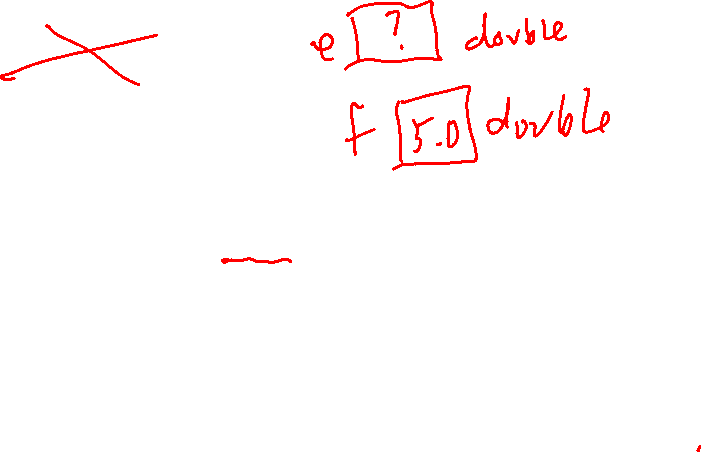 e ? double
f 5.0 double